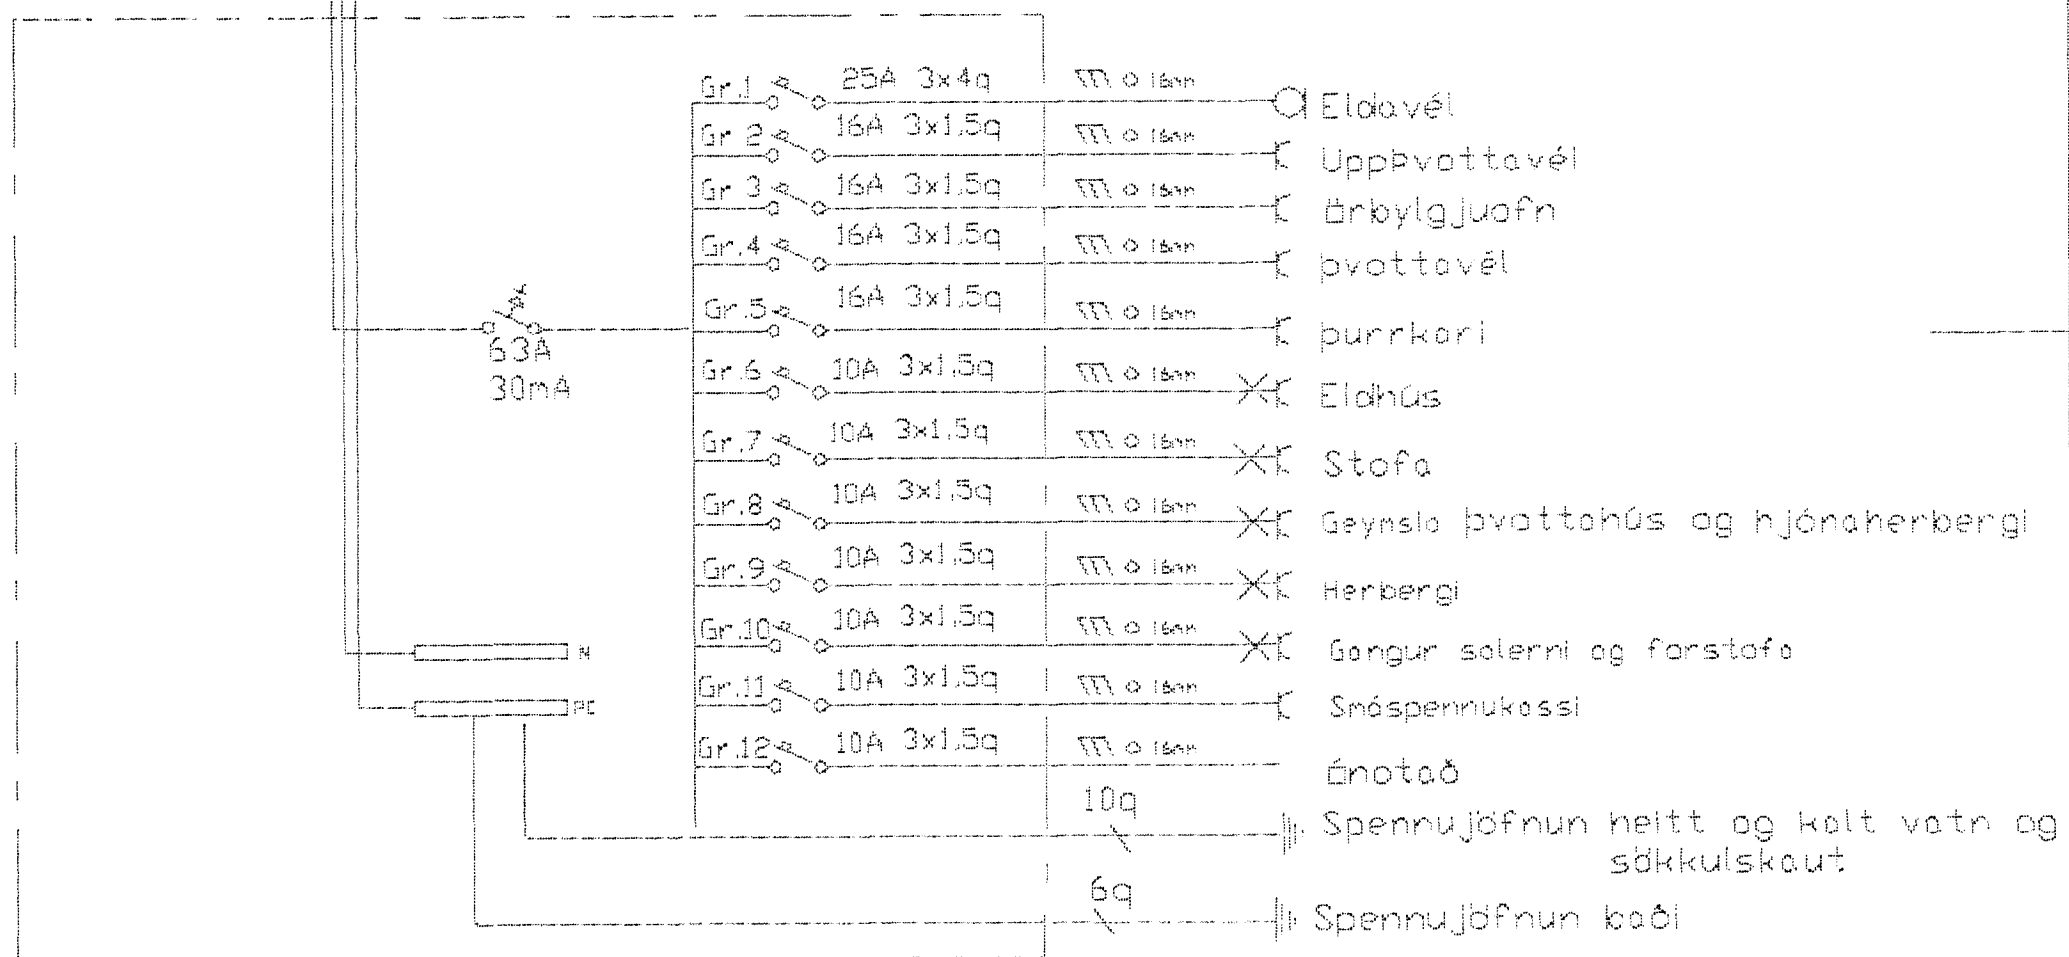 Gr.1 25A 3x4q ø 16mm Eldavél
Gr 2 16A 3x1,5q ø 16mm Uppþvottavél
Gr 3 16A 3x1,5q ø 16mm Örbylgjuofn
Gr.4 16A 3x1,5q ø 16mm Þvottavél
Gr.5 16A 3x1,5q ø 16mm Þurrkari
63A
30mA
Gr.6 10A 3x1,5q ø 16mm Eldhús
Gr.7 10A 3x1,5q ø 16mm Stofa
Gr.8 10A 3x1,5q ø 16mm Geymsla þvottahús og hjónaherbergi
Gr.9 10A 3x1,5q ø 16mm Herbergi
Gr.10 10A 3x1,5q ø 16mm Gangur salerni og forstofa
N
Gr.11 10A 3x1,5q ø 16mm Smáspennukassi
PE
Gr.12 10A 3x1,5q ø 16mm Ónotað
10q
Spennujöfnun heitt og kalt vatn og
sökkulskaut
6q
Spennujöfnun baði